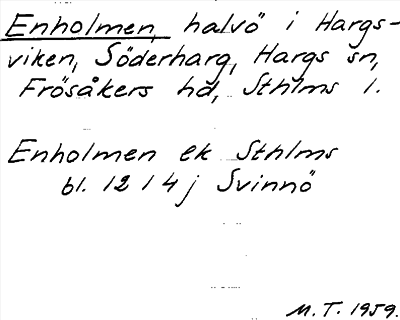 Enholmen, halvö i Hargs-
viken, Söderharg, Hargs sn,
Frösåkers hd, Sthlms l.
Enholmen ek Sthlms
bl. 12 I 4 j Svinnö
M.T. 1959.